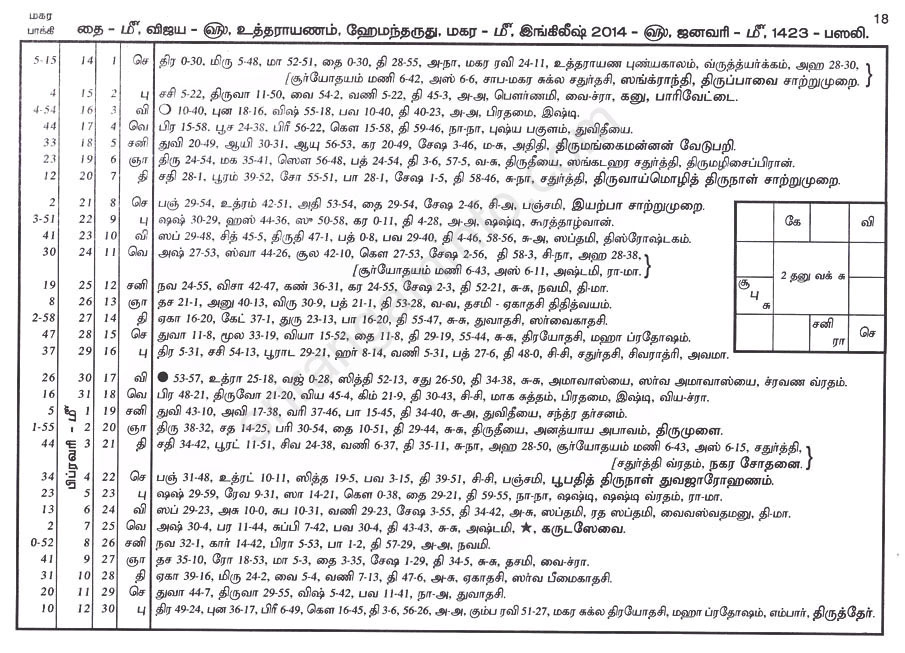 18
மகர
பாக்கி
தை - மீ, விஜய - ௵, உத்தராயணம், ஹேமந்தருது, மகர - மீ, இங்கிலீஷ் 2014 - ௵, ஜனவரி - மீ, 1423 - பஸலி.
5-15 14 1 செ திர 0-30, மிரு 5-48, மா 52-51, தை 0-30, தி 28-55, அ-நா, மகர ரவி 24-11, உத்தராயண புண்யகாலம், வ்ருத்த்யர்க்கம், அஹ 28-30,
[சூர்யோதயம் மணி 6-42, அஸ் 6-6, சாப-மகர சுக்ல சதுர்தசி, ஸங்க்ராந்தி, திருப்பாவை சாற்றுமுறை.
4 15 2 பு சசி 5-22, திருவா 11-50, வை 54-2, வணி 5-22, தி 45-3, அ-அ, பௌர்ணமி, வை-ச்ரா, கனு, பாரிவேட்டை.
4-54 16 3 வி ○ 10-40, புன 18-16, விஷ் 55-18, பவ 10-40, தி 40-23, அ-அ, பிரதமை, இஷ்டி.
44 17 4 வெ பிர 15-58, பூச 24-38, பிரீ 56-22, கௌ 15-58, தி 59-46, நா-நா, புஷ்ய பகுளம், துவிதீயை.
33 18 5 சனி துவி 20-49, ஆயி 30-31, ஆயு 56-53, கர 20-49, சேஷ 3-46, ம-சு, அதிதி, திருமங்கைமன்னன் வேடுபறி.
23 19 6 ஞா திரு 24-54, மக 35-41, ஸௌ 56-48, பத் 24-54, தி 3-6, 57-5, வ-சு, திருதீயை, ஸங்கடஹர சதுர்த்தி, திருமழிசைப்பிரான்.
12 20 7 தி சதி 28-1, பூரம் 39-52, சோ 55-51, பா 28-1, சேஷ 1-5, தி 58-46, சு-நா, சதுர்த்தி, திருவாய்மொழித் திருநாள் சாற்றுமுறை.
2 21 8 செ பஞ் 29-54, உத்ரம் 42-51, அதி 53-54, தை 29-54, சேஷ 2-46, சி-அ, பஞ்சமி, இயற்பா சாற்றுமுறை.
3-51 22 9 பு ஷஷ் 30-29, ஹஸ் 44-36, ஸு 50-58, கர 0-11, தி 4-28, அ-அ, ஷஷ்டி, கூரத்தாழ்வான்.
41 23 10 வி ஸப் 29-48, சித் 45-5, திருதி 47-1, பத் 0-8, பவ 29-40, தி 4-46, 58-56, சு-அ, ஸப்தமி, திஸ்ரோஷ்டகம்.
30 24 11 வெ அஷ் 27-53, ஸ்வா 44-26, சூல 42-10, கௌ 27-53, சேஷ 2-56, தி 58-3, சி-நா, அஹ 28-38,
[சூர்யோதயம் மணி 6-43, அஸ் 6-11, அஷ்டமி, ரா-மா.
19 25 12 சனி நவ 24-55, விசா 42-47, கண் 36-31, கர 24-55, சேஷ 2-3, தி 52-21, சு-சு, நவமி, தி-மா.
8 26 13 ஞா தச 21-1, அனு 40-13, விரு 30-9, பத் 21-1, தி 53-28, வ-வ, தசமி - ஏகாதசி திதித்வயம்.
2-58 27 14 தி ஏகா 16-20, கேட் 37-1, துரு 23-13, பா 16-20, தி 55-47, சு-சு, துவாதசி, ஸர்வைகாதசி.
47 28 15 செ துவா 11-8, மூல 33-19, வியா 15-52, தை 11-8, தி 29-19, 55-44, சு-சு, திரயோதசி, மஹா ப்ரதோஷம்.
37 29 16 பு திர 5-31, சசி 54-13, பூராட 29-21, ஹர் 8-14, வணி 5-31, பத் 27-6, தி 48-0, சி-சி, சதுர்தசி, சிவராத்ரி, அவமா.
கே வி
2 தனு வக் சு
சூ பு சு
சனி ரா செ
26 30 17 வி ● 53-57, உத்ரா 25-18, வஜ் 0-28, ஸித்தி 52-13, சது 26-50, தி 34-38, சு-சு, அமாவாஸ்யை, ஸர்வ அமாவாஸ்யை, ச்ரவண வ்ரதம்.
16 31 18 வெ பிர 48-21, திருவோ 21-20, விய 45-4, கிம் 21-9, தி 30-43, சி-சி, மாக சுத்தம், பிரதமை, இஷ்டி, விய-ச்ரா.
பிப்ரவரி - மீ
5 1 19 சனி துவி 43-10, அவி 17-38, வரி 37-46, பா 15-45, தி 34-40, சு-அ, துவிதீயை, சந்த்ர தர்சனம்.
1-55 2 20 ஞா திரு 38-32, சத 14-25, பரி 30-54, தை 10-51, தி 29-44, சு-சு, திருதீயை, அனத்யாய அபாவம், திருமுளை.
44 3 21 தி சதி 34-42, பூரட் 11-51, சிவ 24-38, வணி 6-37, தி 35-11, சு-நா, அஹ 28-50, சூர்யோதயம் மணி 6-43, அஸ் 6-15, சதுர்த்தி,
[சதுர்த்தி வ்ரதம், நகர சோதனை.
34 4 22 செ பஞ் 31-48, உத்ரட் 10-11, ஸித்த 19-5, பவ 3-15, தி 39-51, சி-சி, பஞ்சமி, பூபதித் திருநாள் துவஜாரோஹணம்.
23 5 23 பு ஷஷ் 29-59, ரேவ 9-31, ஸா 14-21, கௌ 0-38, தை 29-21, தி 59-55, நா-நா, ஷஷ்டி, ஷஷ்டி வ்ரதம், ரா-மா.
13 6 24 வி ஸப் 29-23, அசு 10-0, சுப 10-31, வணி 29-23, சேஷ 3-55, தி 34-42, அ-சு, ஸப்தமி, ரத ஸப்தமி, வைவஸ்வதமனு, தி-மா.
2 7 25 வெ அஷ் 30-4, பர 11-44, சுப்பி 7-42, பவ 30-4, தி 43-43, சு-சு, அஷ்டமி, ★, கருடஸேவை.
0-52 8 26 சனி நவ 32-1, கார் 14-42, பிரா 5-53, பா 1-2, தி 57-29, அ-அ, நவமி.
41 9 27 ஞா தச 35-10, ரோ 18-53, மா 5-3, தை 3-35, சேஷ 1-29, தி 34-5, சு-சு, தசமி, வை-ச்ரா.
31 10 28 தி ஏகா 39-16, மிரு 24-2, வை 5-4, வணி 7-13, தி 47-6, அ-சு, ஏகாதசி, ஸர்வ பீமைகாதசி.
20 11 29 செ துவா 44-7, திருவா 29-55, விஷ் 5-42, பவ 11-41, நா-அ, துவாதசி.
10 12 30 பு திர 49-24, புன 36-17, பிரீ 6-49, கௌ 16-45, தி 3-6, 56-26, அ-அ, கும்ப ரவி 51-27, மகர சுக்ல திரயோதசி, மஹா ப்ரதோஷம், எம்பார், திருத்தேர்.